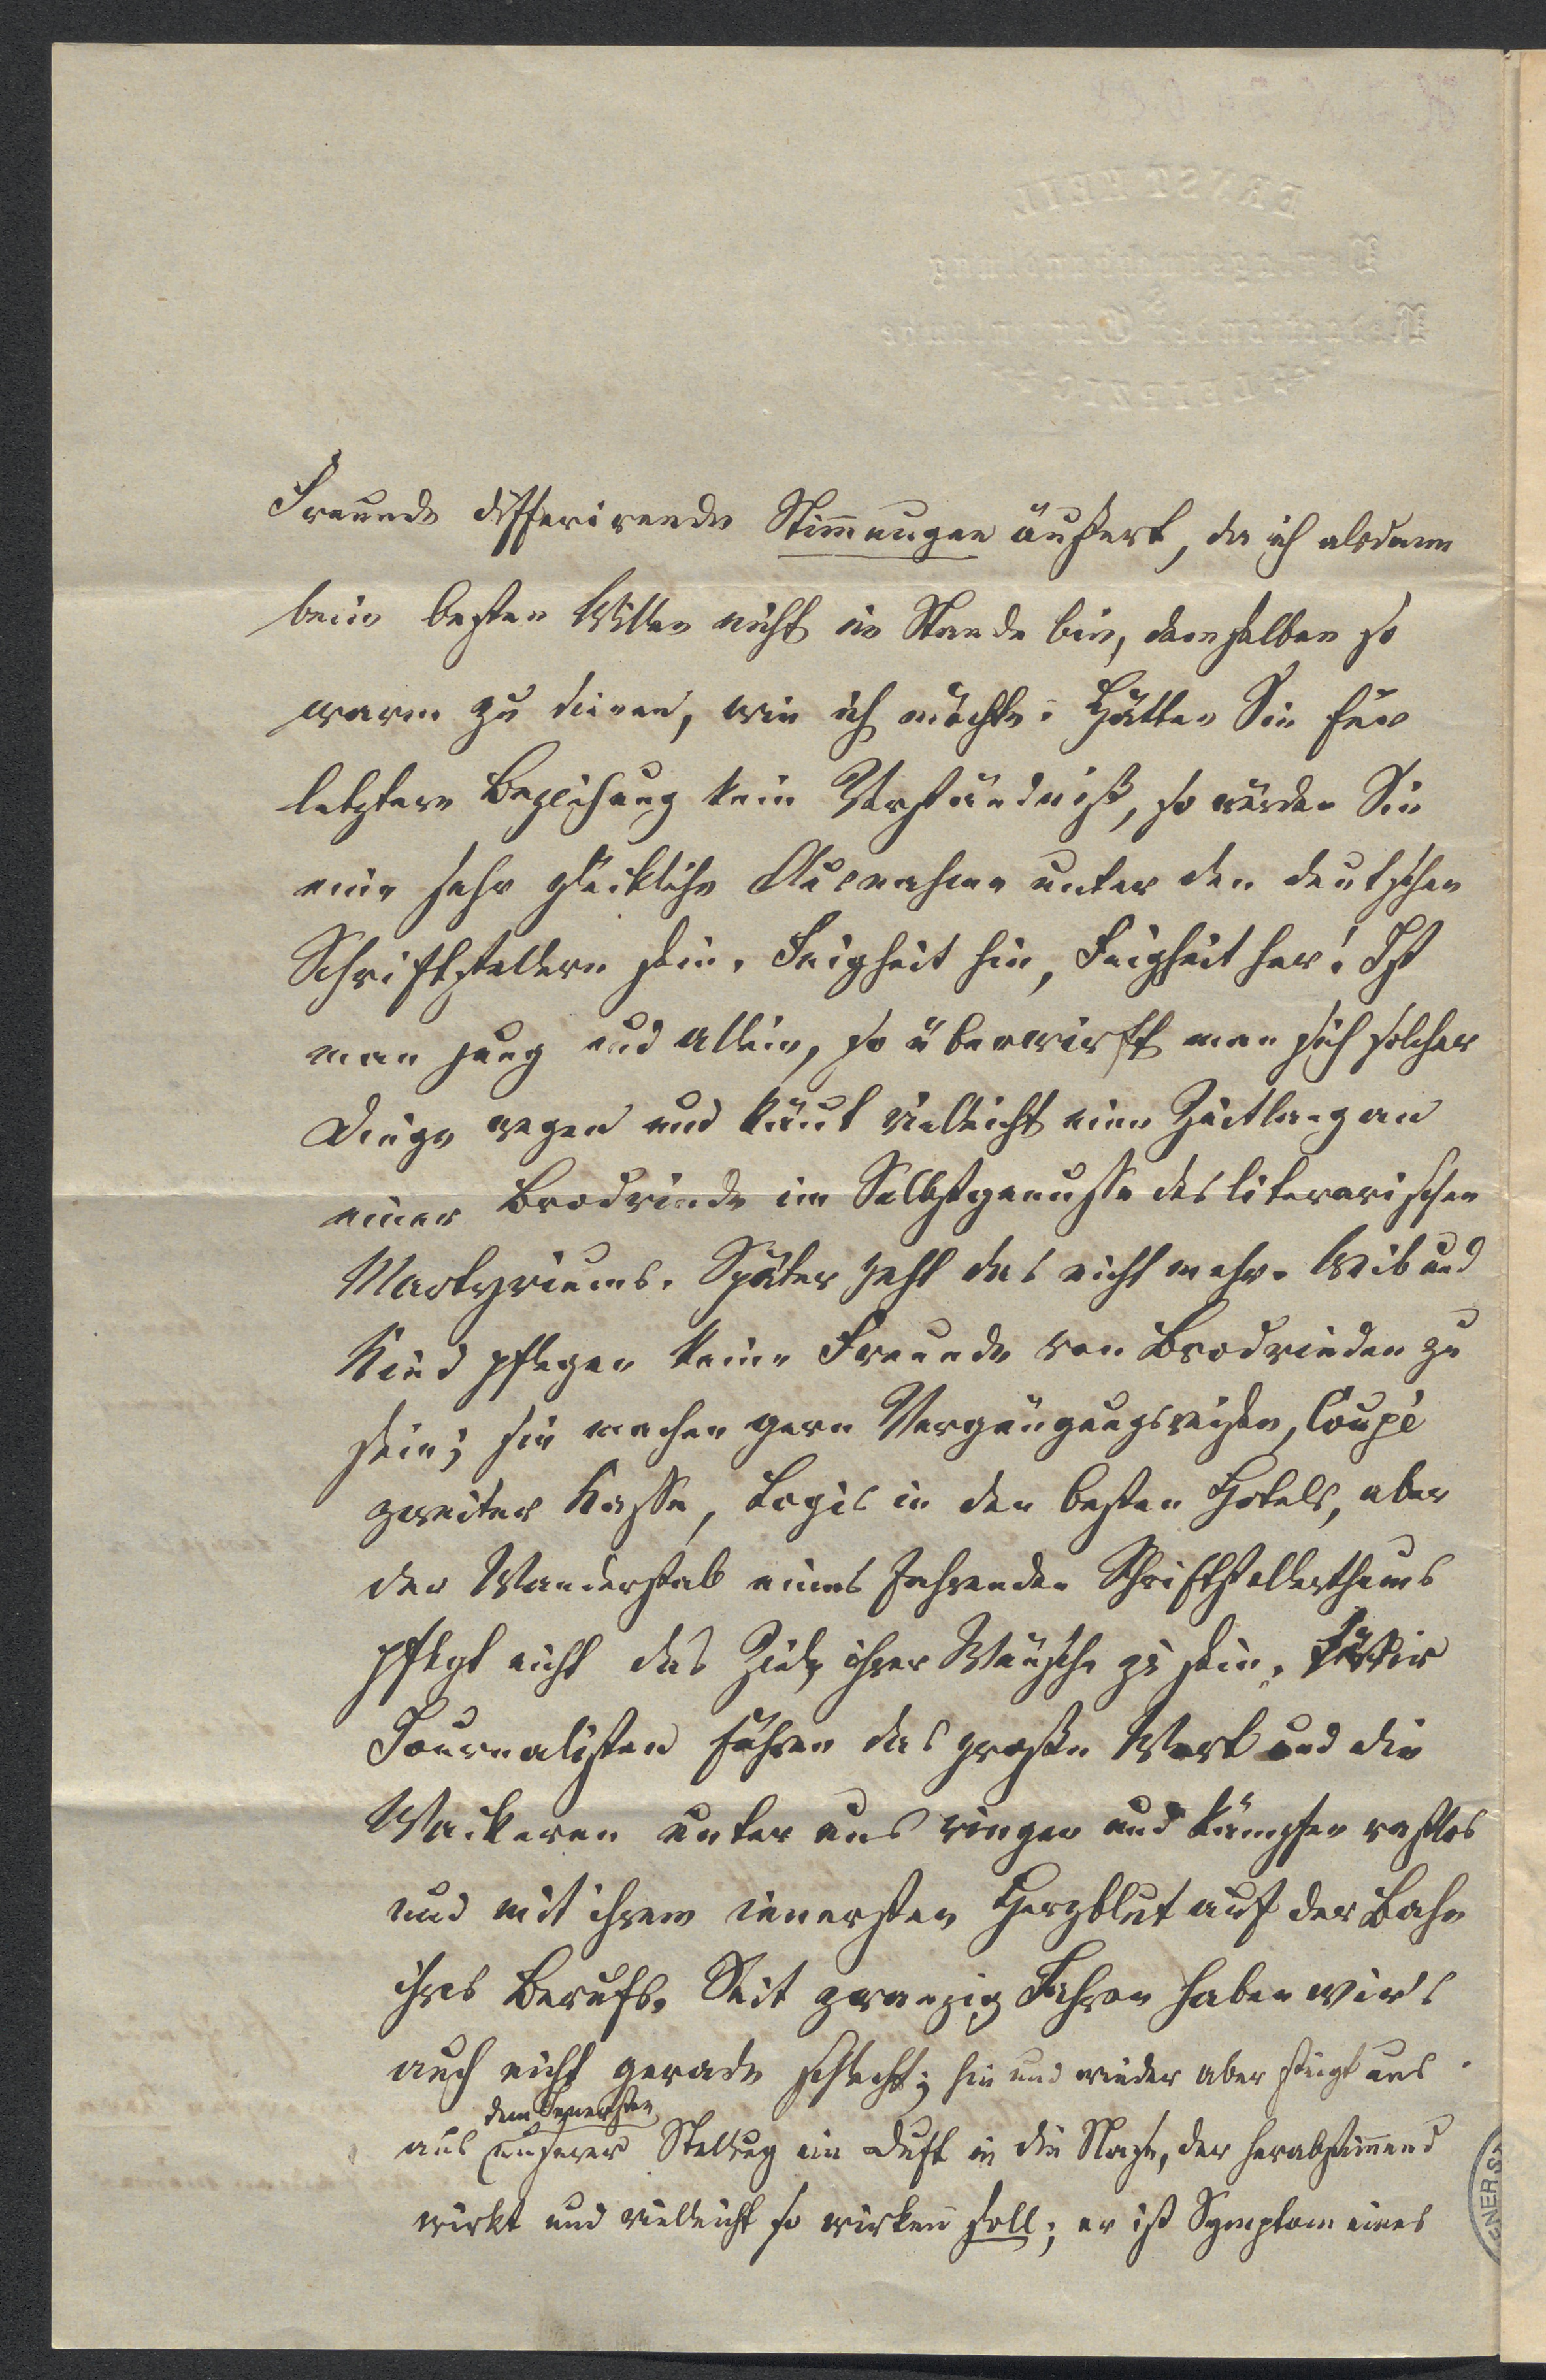 ERNST KEIL
Verlagsbuchhandlung
&
LEIPZIG
Freunde differirende Stimmungen äußert, da ich alsdann
beim besten Willen nicht im Stande bin, demselben so
warm zu dienen, wie ich möchte. Hätten Sie für
letztere Beziehung kein Verständniß, so würden Sie
eine sehr glückliche Ausnahme unter den deutschen
Schriftstellern sein. Feigheit hin, Feigheit her! Ist
man jung und allein, so überwirft man sich solcher
Dinge wegen und käut vielleicht eine Zeitlang an
einer Brodrinde im Selbstgenusse des literarischen
Martyriums. Später geht das nicht mehr. Weib und
Kind pflegen keine Freunde von Brodrinden zu
sein; sie machen gern Vergnügungsreisen, Coupé
zweiter Klasse, Logis in den besten Hotels, aber
der Wanderstab eines fahrenden Schriftstellerthums
pflegt nicht das Ziel ihrer Wünsche zu sein. Wir
Journalisten führen das große Wort und die
Wackeren unter uns ringen und kämpfen rastlos
und mit ihrem innersten Herzblut auf der Bahn
ihres Berufs. Seit zwanzig Jahren haben wir's
auch nicht gerade schlecht; hin und wieder aber steigt uns
dem Innersten
aus unserer Stellung ein Duft in die Nase, der herabstimmend
wirkt und vielleicht so wirken soll; er ist Symptom eines